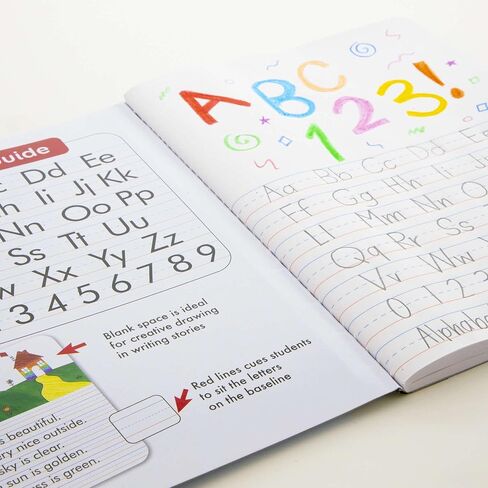 Guide
Dd Ee
Ii Jj Kk
Nn Oo Pp
Ss Tt Uu
Ww Xx Yy Zz
3 4 5 6 7 8 9
Blank space is ideal
for creative drawing
in writing stories
Red lines cues students
to sit the letters
on the baseline
s beautiful.
ry nice outside.
sky is clear.
sun is golden.
ss is green.
ABC
123!
Aa Bb Cc Dd Ee
Ff Gg Hh Ii Jj
Ll Mm Nn Oo
Qq Rr Ss
Vv Ww
0 1 2 3
Alphabe